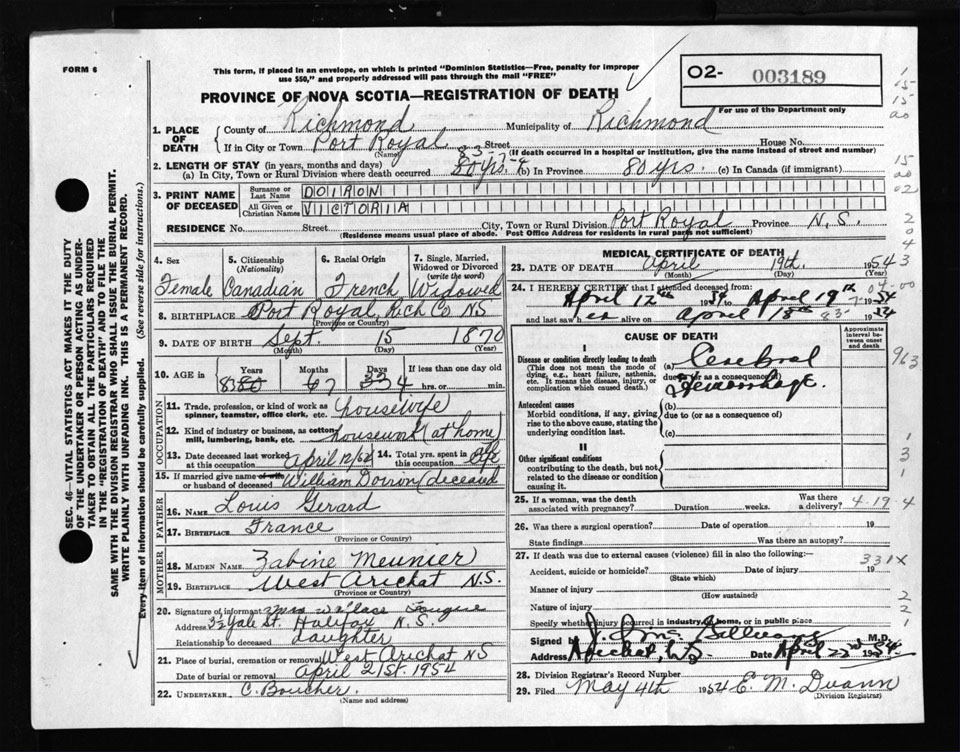 FORM 6
This form, if placed in an envelope, on which is printed "Dominion Statistics—Free, penalty for improper
use $50," and properly addressed will pass through the mail "FREE"
PROVINCE OF NOVA SCOTIA—REGISTRATION OF DEATH
O2- 003189
For use of the Department only
1. PLACE OF DEATH
County of Richmond Municipality of Richmond
If in City or Town Port Royal Street House No.
(Name) (If death occurred in a hospital or institution, give the name instead of street and number)
2. LENGTH OF STAY (in years, months and days) 83-
(a) In City, Town or Rural Division where death occurred 80 yrs. (b) In Province 80 yrs. (c) In Canada (if immigrant)
3. PRINT NAME OF DECEASED
Surname or Last Name DOIRON
All Given or Christian Names VICTORIA
RESIDENCE No. Street City, Town or Rural Division Port Royal Province N.S.
(Residence means usual place of abode. Post Office Address for residents in rural parts not sufficient)
4. Sex Female
5. Citizenship (Nationality) Canadian
6. Racial Origin French
7. Single, Married, Widowed or Divorced (write the word) Widowed
8. BIRTHPLACE Port Royal, Rich Co NS
(Province or Country)
9. DATE OF BIRTH Sept. 15 1870
(Month) (Day) (Year)
10. AGE in Years Months Days If less than one day old
83 80 7 4 hrs. or min.
OCCUPATION
11. Trade, profession, or kind of work as spinner, teamster, office clerk, etc. housewife
12. Kind of industry or business, as cotton-mill, lumbering, bank, etc. housework (at home)
13. Date deceased last worked at this occupation April 12/54
14. Total yrs. spent in this occupation life
15. If married give name of wife or husband of deceased William Doiron (deceased
FATHER
16. NAME Louis Gerard
17. BIRTHPLACE France
(Province or Country)
MOTHER
18. MAIDEN NAME Zabine Meunier
19. BIRTHPLACE West Arichat N.S.
(Province or Country)
20. Signature of informant Mrs Wallace Fougere
Address 32 Yale St. Halifax N.S.
Relationship to deceased daughter
21. Place of burial, cremation or removal West Arichat NS
Date of burial or removal April 21st. 1954
22. UNDERTAKER C. Boucher.
(Name and address)
MEDICAL CERTIFICATE OF DEATH
23. DATE OF DEATH April 19th. 1954
(Month) (Day) (Year)
24. I HEREBY CERTIFY that I attended deceased from:
April 12th 54 to April 19th 1954
and last saw her alive on April 18th 1954
CAUSE OF DEATH
Approximate interval between onset and death
I
Disease or condition directly leading to death
(This does not mean the mode of dying, e.g., heart failure, asthenia, etc. It means the disease, injury, or complication which caused death.)
(a) Cerebral
due to (or as a consequence of)
Hemorrhage.
Antecedent causes
Morbid conditions, if any, giving rise to the above cause, stating the underlying condition last.
(b)
due to (or as a consequence of)
(c)
II
Other significant conditions
contributing to the death, but not related to the disease or condition causing it.
25. If a woman, was the death associated with pregnancy? Duration weeks. Was there a delivery? 4-19-4
26. Was there a surgical operation? Date of operation 19
State findings Was there an autopsy?
27. If death was due to external causes (violence) fill in also the following:—
331X
Accident, suicide or homicide? Date of injury 19
(State which)
Manner of injury
(How sustained)
Nature of injury
Specify whether injury occurred in industry, home, or in public place
Signed by M.D.
Address Arichat, N.S. Date April 22nd 1954
28. Division Registrar's Record Number
29. Filed May 4th 1954 E. M. Duann
(Division Registrar)
SEC. 46—VITAL STATISTICS ACT MAKES IT THE DUTY
OF THE UNDERTAKER OR PERSON ACTING AS UNDER-
TAKER TO OBTAIN ALL THE PARTICULARS REQUIRED
IN THE "REGISTRATION OF DEATH" AND TO FILE THE
SAME WITH THE DIVISION REGISTRAR WHO SHALL ISSUE THE BURIAL PERMIT.
WRITE PLAINLY WITH UNFADING INK. THIS IS A PERMANENT RECORD.
Every item of information should be carefully supplied. (See reverse side for instructions.)